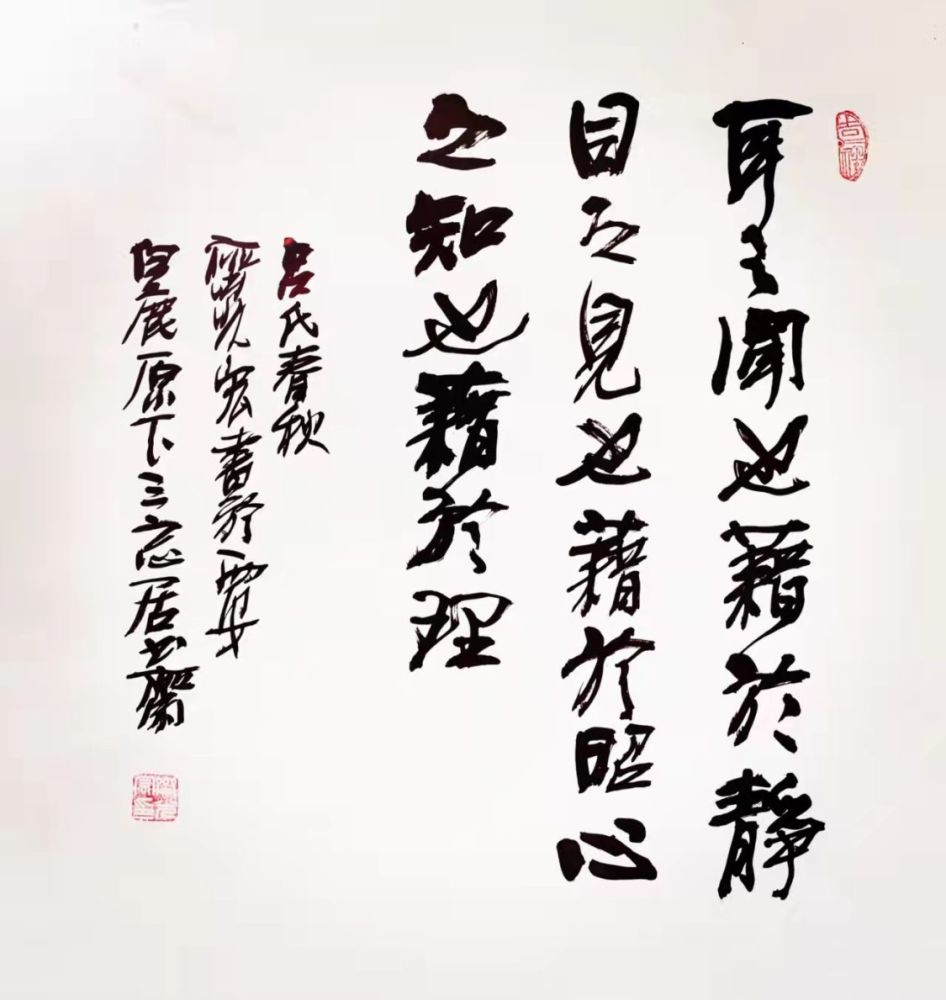 吉祥
耳之聞也藉於靜
目之見也藉於昭心
之知也藉於理
呂氏春秋
宏書於西安
白鹿原下三忘居书齋